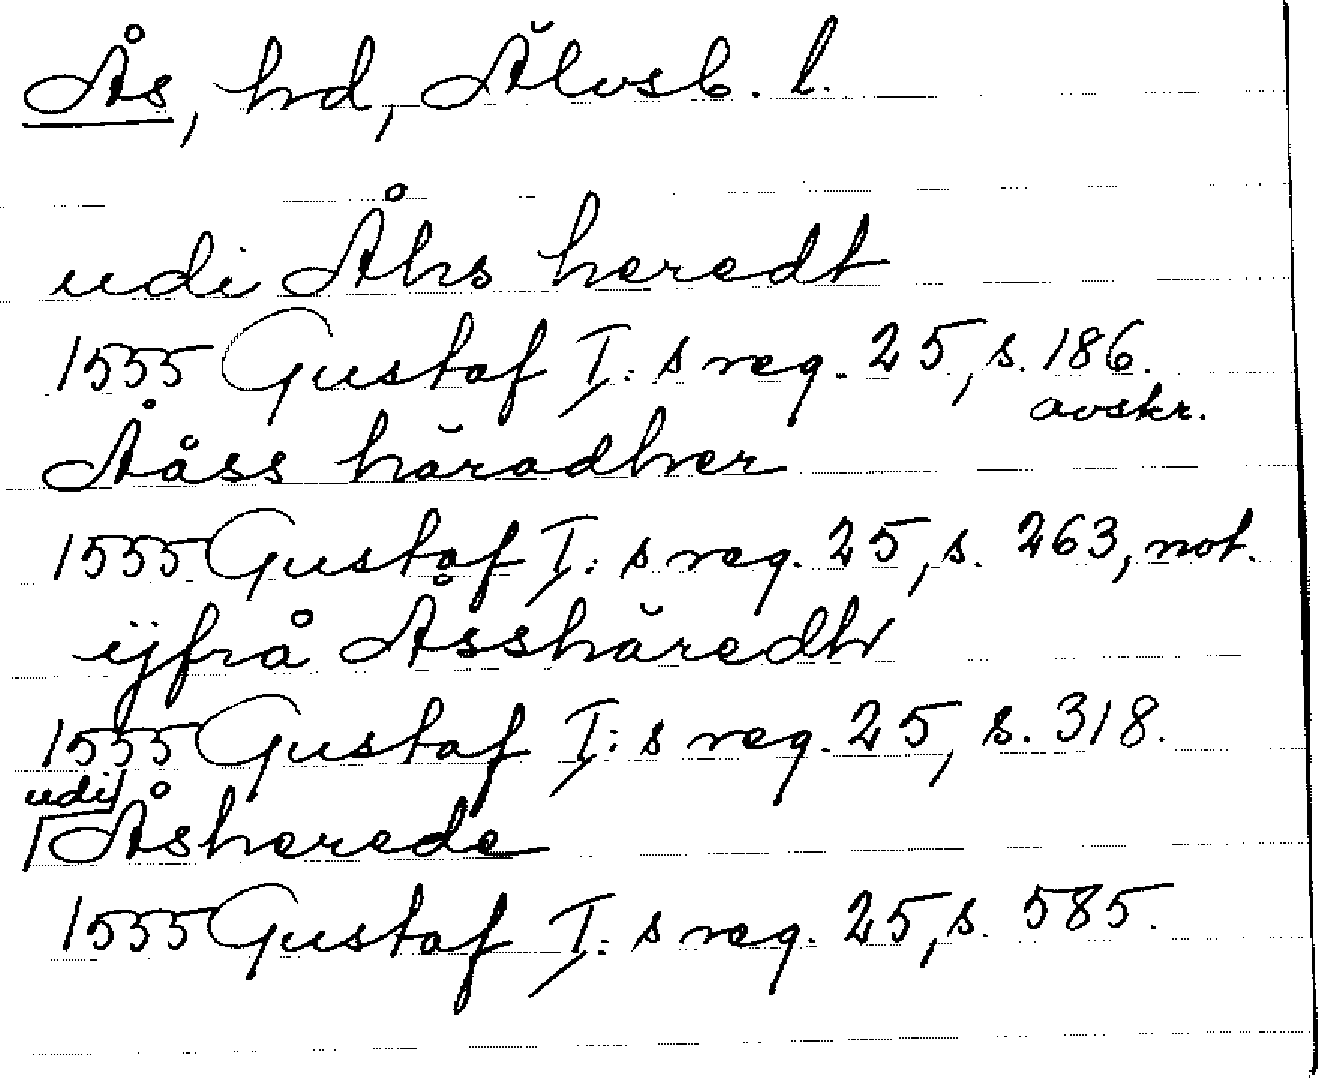 Ås, hd, Älvsb. l.
udi Åhs heredt
1555 Gustaf I:s reg. 25, s. 186.
avskr.
Ååss häradher
1555 Gustaf I:s reg. 25, s. 263, not.
ijfrå Åsshäredh
1555 Gustaf I:s reg. 25, s. 318.
udi
Åsherede
1555 Gustaf I:s reg. 25, s. 585.